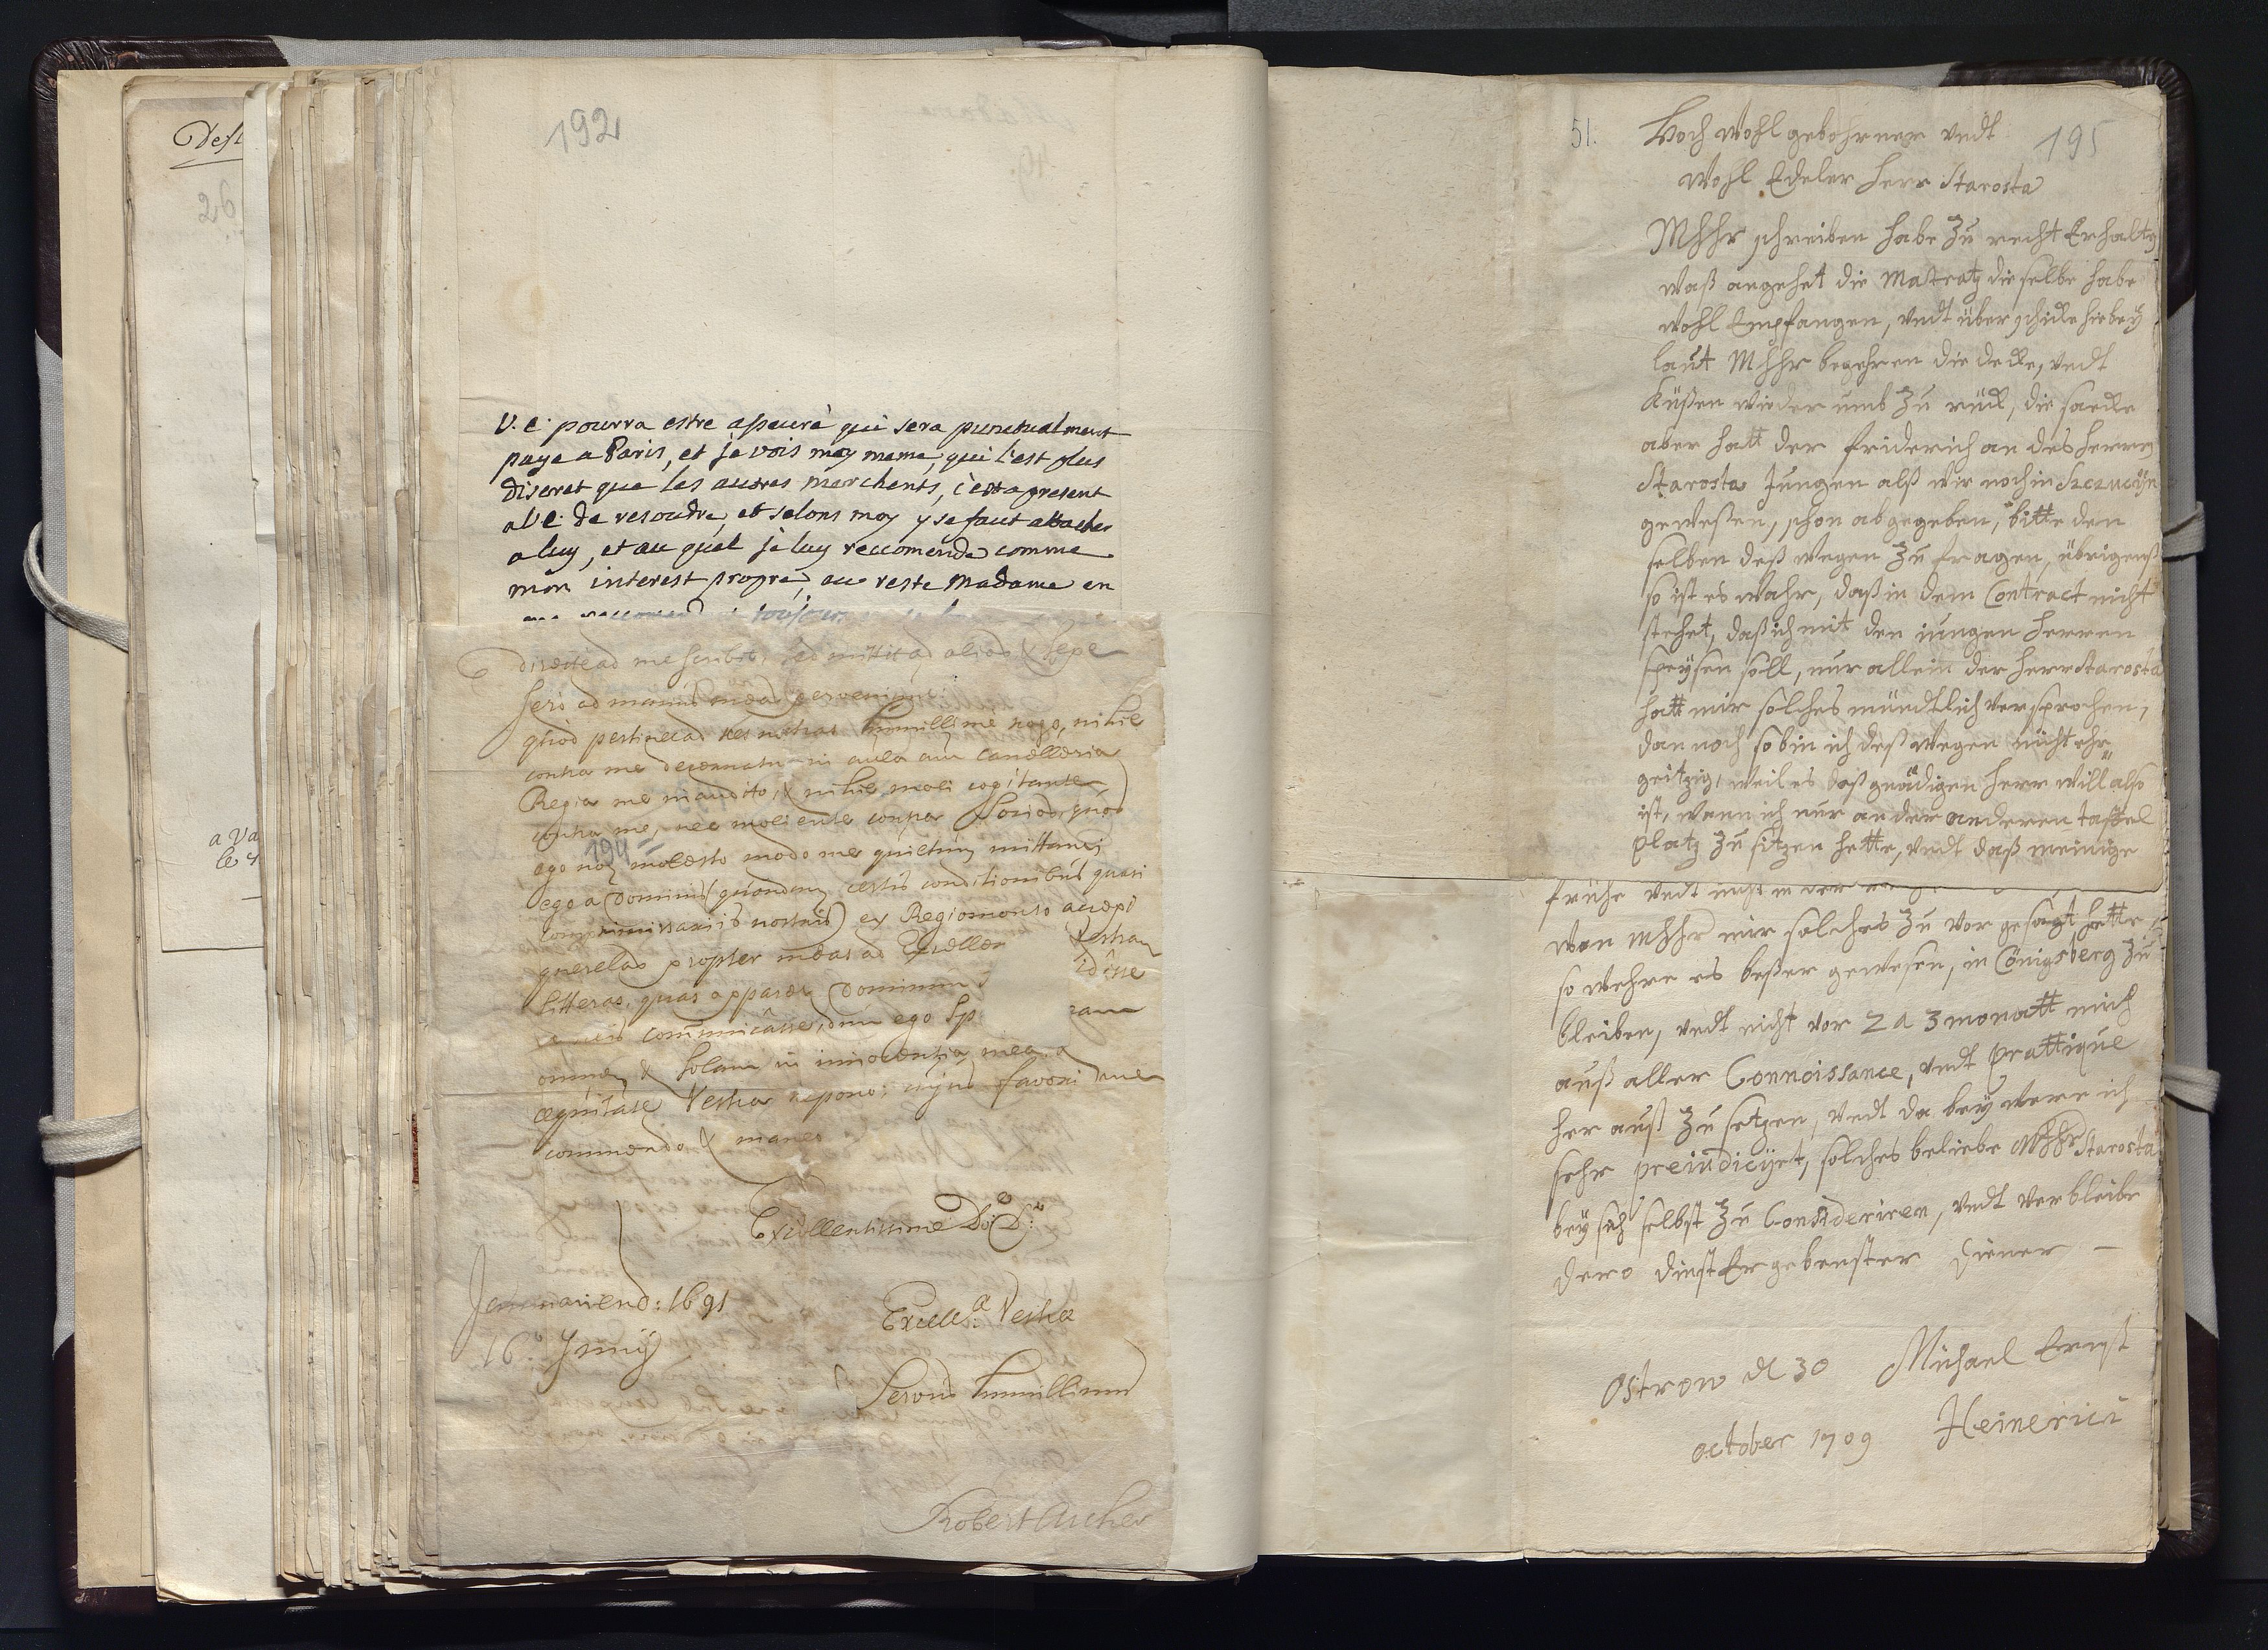 Dest
26
a Va
le
192
V. E. pourra estre aseuré qui sera punctualment
paye a Paris, et je vois moy mame, qui l'est plus
discret que les autres marchents, c'est a present
a V.E. de resoudre, et selons moy y se faut attacher
a luy, et au quel je luy reccomende comme
mon interest propre, au reste Madame en
directe ad me scribit, sed mittit ad alios & sepe
sero ad manus meas perveniunt:
quod pertinet ad res nostras humillime rogo, nihil
contra me decernatur in aula aut Cancellaria
Regia me inaudito, & nihil mali cogitante
contra me, nec moliente
194
ego non molesto modo me quietum mittant
ego a Dominis quondam certis conditionibus quasi
commissariis nostris ex Regiomonte accepi
querelas propter meas ad Excellen Vestram
litteras, quas apparet Dominum idisse
communicasse, dum ego sp ram
omnem & solam in innocentia mea, &
æquitate Vestra repono: cujus favori me
commendo & maneo
Excellentissime D: D:
16 91
16 Junij
Excell.a Vestræ
Servus humillimus
Robert Archer
51.
195
Hoch wohl gebohrner undt
wohl Edeler Herr Starosta
MhHr schreiben habe zu recht Erhalten
waß angehet die Matratz die selbe habe
wohl Empfangen, undt über schicke hiebey
laut MhHr begehren die decke, undt
Küßen wieder umb zu rück, die saecke
aber hatt der friderich an des Herren
Starosta Jungen alß wir noch in Szczuczyn
geweßen, schon abgegeben, bitte den
selben deß wegen zu fragen, übrigenß
so ist es wahr, daß in dem Contract nicht
stehet, daß ich mit den jungen Herren
speysen soll, nur allein der Herr Starosta
hatt mir solches mündtlich versprochen,
dan noch so bin ich deß wegen nicht ehr
geitzig, weil es daß gnädigen Herr will also
ist, wenn ich nur an der anderen taffel
platz zu sitzen hette, undt daß meinige
frühe undt nicht in der
wen MhHr mir solches zu vor gesagt hette,
so wehre es beßer gewesen, in Cönigsberg zu
bleiben, undt nicht vor 2 a 3 monatt mich
auß aller Connoissance, undt Prattique
her auß zu setzen, undt da bey were ich
sehr preiudicyrt, solches beliebe MhHr Starosta
bey sich selbst zu Consideriren, undt verbleibe
dero dinst Ergebenster Diener
Ostrow d 30 Michael Ernst
october 1709 Heinerici